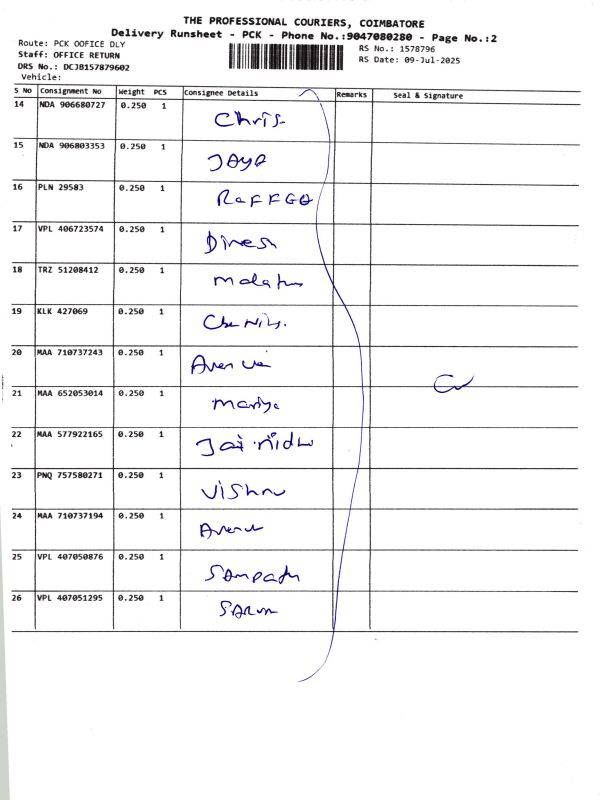 THE PROFESSIONAL COURIERS, COIMBATORE
Delivery Runsheet - PCK - Phone No.:9047080280 - Page No.:2
Route: PCK OOFICE DLY RS No.: 1578796
Staff: OFFICE RETURN RS Date: 09-Jul-2025
DRS No.: DCJB157879602
Vehicle:
S No Consignment No Weight PCS Consignee Details Remarks Seal & Signature
14 NDA 906680727 0.250 1 Chris
15 NDA 906803353 0.250 1 JAYA
16 PLN 29583 0.250 1
17 VPL 406723574 0.250 1 Dinesh
18 TRZ 51208412 0.250 1
19 KLK 427069 0.250 1
20 MAA 710737243 0.250 1
21 MAA 652053014 0.250 1 Mariya
22 MAA 577922165 0.250 1
23 PNQ 757580271 0.250 1 Vishnu
24 MAA 710737194 0.250 1
25 VPL 407050876 0.250 1 SAmpath
26 VPL 407051295 0.250 1